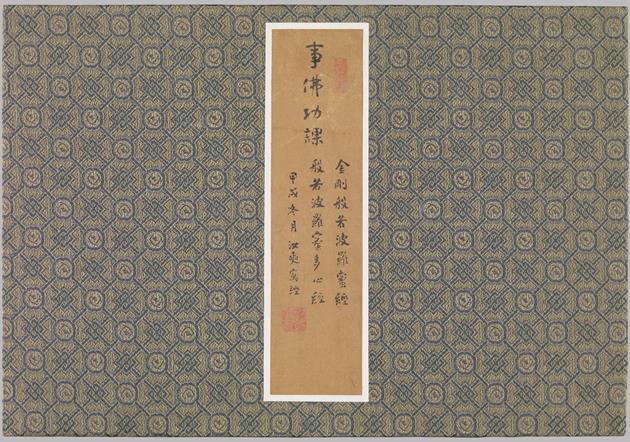 事佛功課
金剛般若波羅蜜經
般若波羅蜜多心經
甲戌冬月汝奭寫經